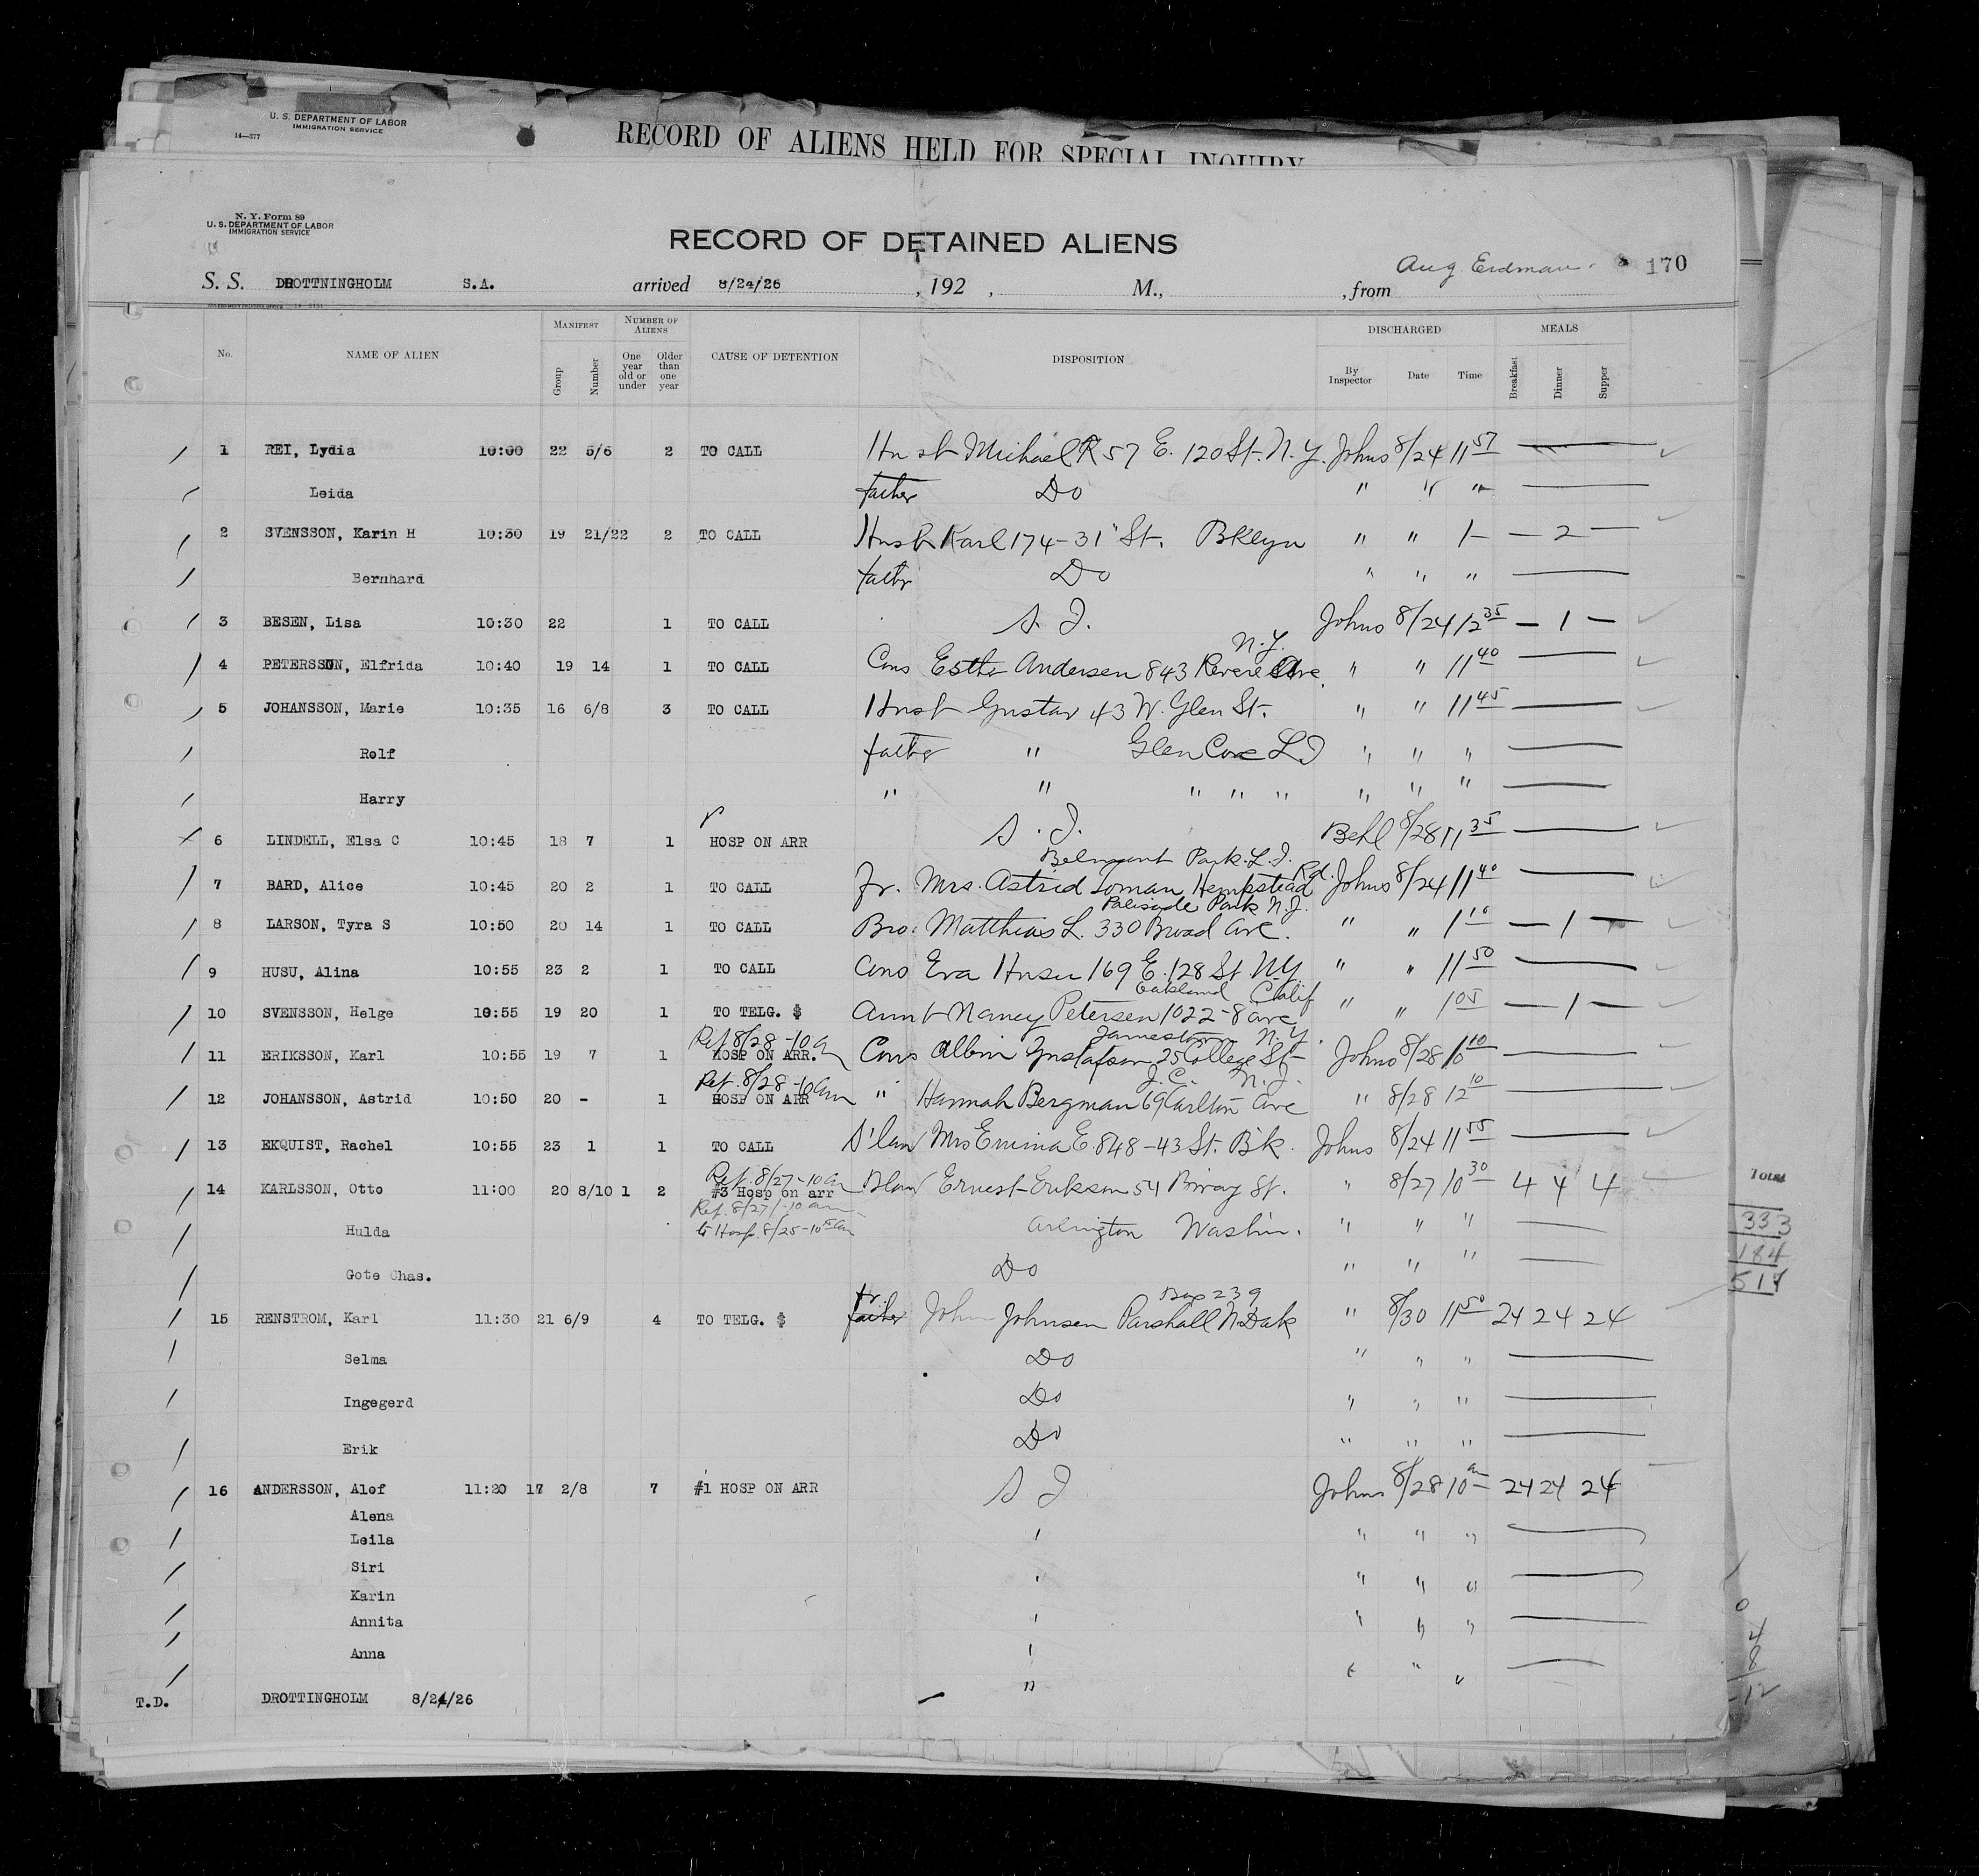 U. S. DEPARTMENT OF LABOR
IMMIGRATION SERVICE
14—377
RECORD OF ALIENS HELD FOR SPECIAL INQUIRY
N. Y. Form 89
U. S. DEPARTMENT OF LABOR
IMMIGRATION SERVICE
RECORD OF DETAINED ALIENS
Aug Erdman 170
S. S. DROTTNINGHOLM S.A. arrived 8/24/26, 192 , M., , from
No. NAME OF ALIEN MANIFEST Group Number NUMBER OF ALIENS One year old or under Older than one year CAUSE OF DETENTION DISPOSITION DISCHARGED By Inspector Date Time MEALS Breakfast Dinner Supper
1 REI, Lydia 10:00 22 5/6 2 TO CALL Husb Michael R 57 E. 120 St. N.Y. Johns 8/24 11 57
Leida father Do " " "
2 SVENSSON, Karin H 10:30 19 21/22 2 TO CALL Husb Karl 174-31" St. Bklyn " " 1 — — 2 —
Bernhard fathr Do " " "
3 BESEN, Lisa 10:30 22 1 TO CALL S. I. Johns 8/24 12 35 — 1 —
N.Y.
4 PETERSSON, Elfrida 10:40 19 14 1 TO CALL Cous Esther Andersen 843 Revere Ave. " " 11 40
5 JOHANSSON, Marie 10:35 16 6/8 3 TO CALL Husb Gustav 43 W. Glen St. " " 11 45
Rolf father " Glen Cove L I " " "
Harry " " " " " " " "
6 LINDELL, Elsa C 10:45 18 7 1 HOSP ON ARR S. I. Behl 8/28 11 35
Belmont Park. L. I.
7 BARD, Alice 10:45 20 2 1 TO CALL fr. Mrs. Astrid Toman Hempstead Rd. Johns 8/24 11 40
Palisade Park N.J.
8 LARSON, Tyra S 10:50 20 14 1 TO CALL Bro. Matthias L. 330 Broad Ave. " " 1 10 — 1 —
9 HUSU, Alina 10:55 23 2 1 TO CALL Cous Eva Husu 169 E. 128 St N.Y. " " 11 50
Oakland Calif
10 SVENSSON, Helge 10:55 19 20 1 TO TELG. $ Aunt Nancy Petersen 1022-8 ave " " 1 05 — 1 —
Ret 8/28-10 a Jamestown N.Y.
11 ERIKSSON, Karl 10:55 19 7 1 HOSP ON ARR. Cous Albin Gustafson 25 College St Johns 8/28 10 10
Ret. 8/28-10 am J.C. N.J.
12 JOHANSSON, Astrid 10:50 20 - 1 HOSP ON ARR " Hannah Bergman 69 Carlton Ave " 8/28 12 10
13 EKQUIST, Rachel 10:55 23 1 1 TO CALL S'law Mrs Emma E. 848-43 St. B'k. Johns 8/24 11 55
Ret. 8/27-10 a
14 KARLSSON, Otto 11:00 20 8/10 1 2 #3 Hosp on arr Blaw Ernest Erikson 54 St. " 8/27 10 30 4 4 4
Ret. 8/27-10 am
Hulda to Hosp. 8/25-10 am Arlington Washin. " " "
Gote Chas. Do " " "
fr. Box 239
15 RENSTROM, Karl 11:30 21 6/9 4 TO TELG. $ father John Johnsen Parshall N Dak " 8/30 11 50 24 24 24
Selma Do " " "
Ingegerd Do " " "
Erik Do " " "
16 ANDERSSON, Alof 11:20 17 2/8 7 #1 HOSP ON ARR S I Johns 8/28 10 am 24 24 24
Alena
Leila " " " "
Siri
Karin " " " "
Annita " " " "
Anna " " " "
T.D. DROTTINGHOLM 8/24/26
Total
333
184
517
0
4
8
12